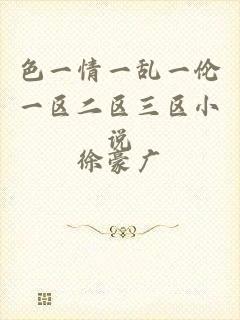 色一情一乱一伦
一区二区三区小
说
徐豪广